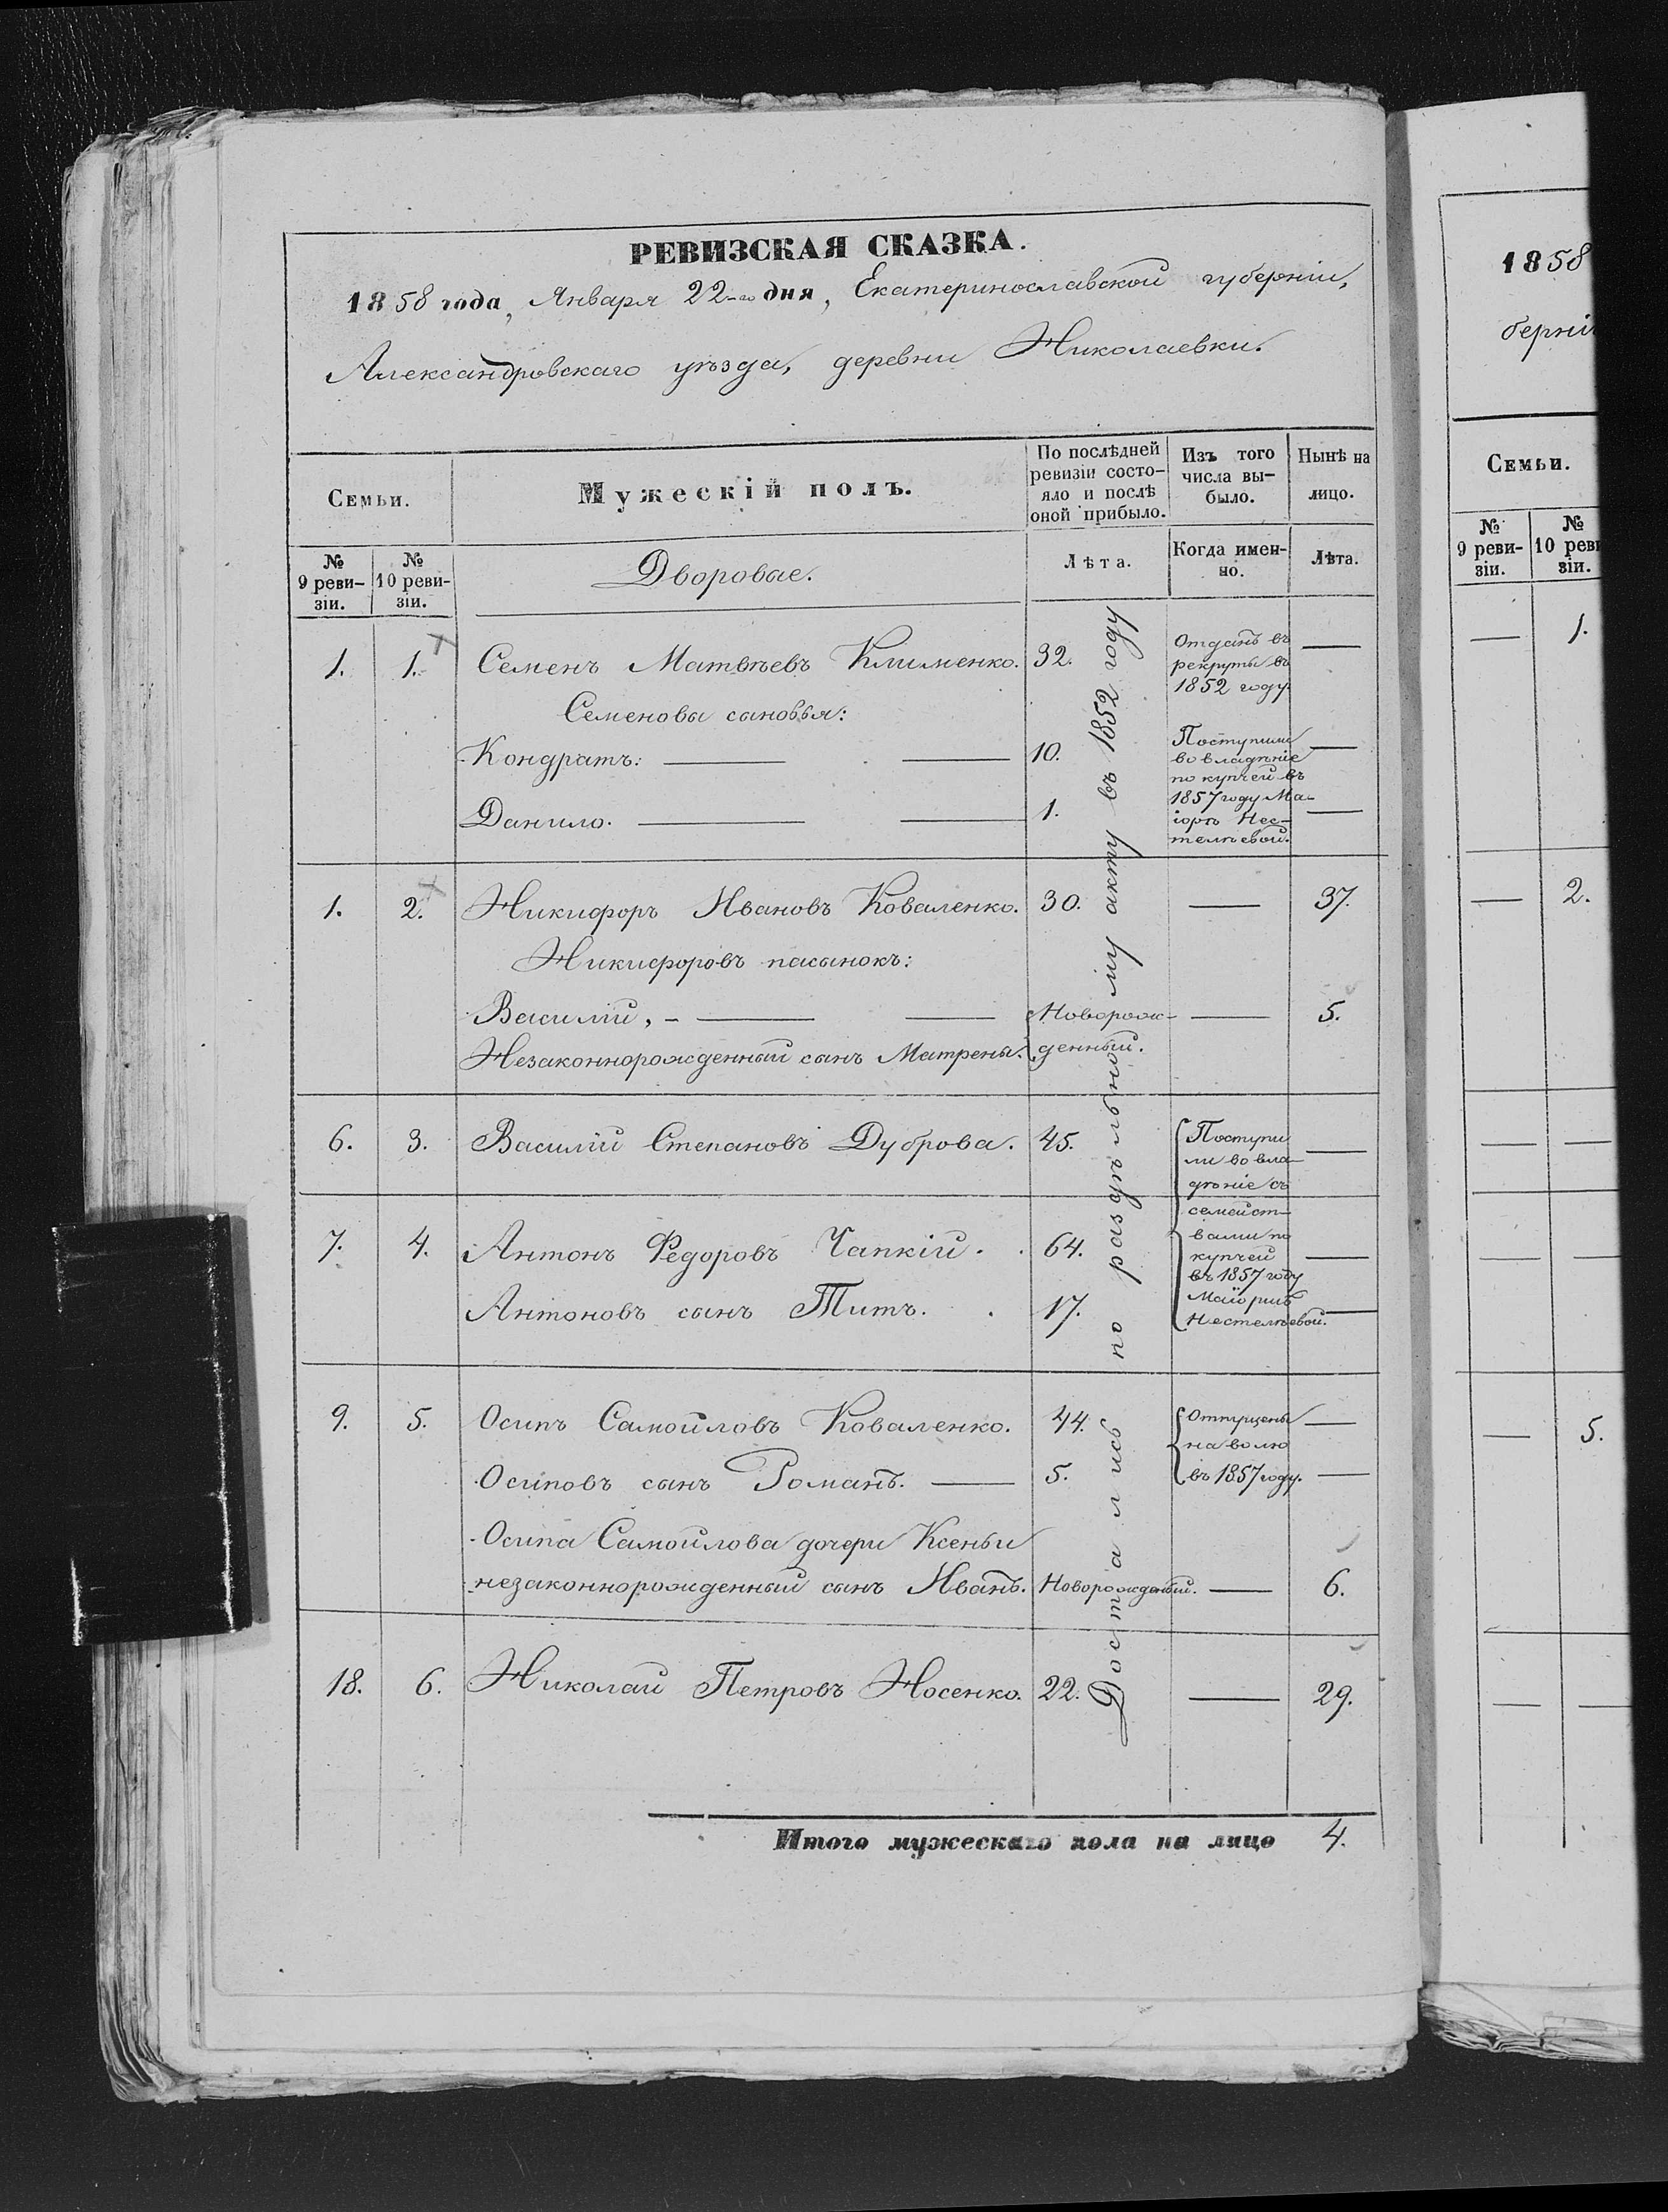 РЕВИЗСКАЯ СКАЗКА.
1858 года, Января 22-го дня, Екатеринославской губерніи,
Александровскаго уѣзда, деревни Николаевки.
Семьи.
Мужескій полъ.
По послѣдней ревизіи состо-
яло и послѣ
оной прибыло.
Изъ того
числа вы-
было.
Нынѣ на
лицо.
№
9 реви-
зіи.
№
10 реви-
зіи.
Дворовые.
Лѣта.
Когда имен-
но.
Лѣта.
1. 1. Семенъ Матвѣевъ Клименко. 32. Отданъ въ —
рекруты въ
1852 году.
Семеновы сыновья:
Кондратъ: — — 10. Поступили —
во владѣніе
по купчей въ
Данило. — — 1. 1857 году Ма- —
іоршѣ Нес-
телѣевой.
1. 2. Никифоръ Ивановъ Коваленко. 30. — 37.
Никифоровъ пасынокъ:
Василій, — — Новорож- — 5.
Незаконнорожденный сынъ Матрены. денный.
6. 3. Василій Степановъ Дуброва. 45. Поступи —
ли во вла-
дѣніе съ
семейст-
7. 4. Антонъ Федоровъ Чапкій. 64. вами по
купчей —
въ 1857 году
Маіоршѣ
Антоновъ сынъ Титъ. 17. Нестелѣевой. —
9. 5. Осипъ Самойловъ Коваленко. 44. Отпущены —
на волю
Осиповъ сынъ Романъ. — 5. въ 1857 году. —
Осипа Самойлова дочери Ксеньи
незаконнорожденный сынъ Иванъ. Новорожденый. — 6.
18. 6. Николай Петровъ Носенко. 22. — 29.
Достались по раздѣльному акту въ 1852 году
Итого мужескаго пола на лицо 4.
1858
берні
Семьи.
№
9 реви-
зіи.
№
10 реви
зіи.
— 1.
— 2.
— —
— —
— 5.
— —